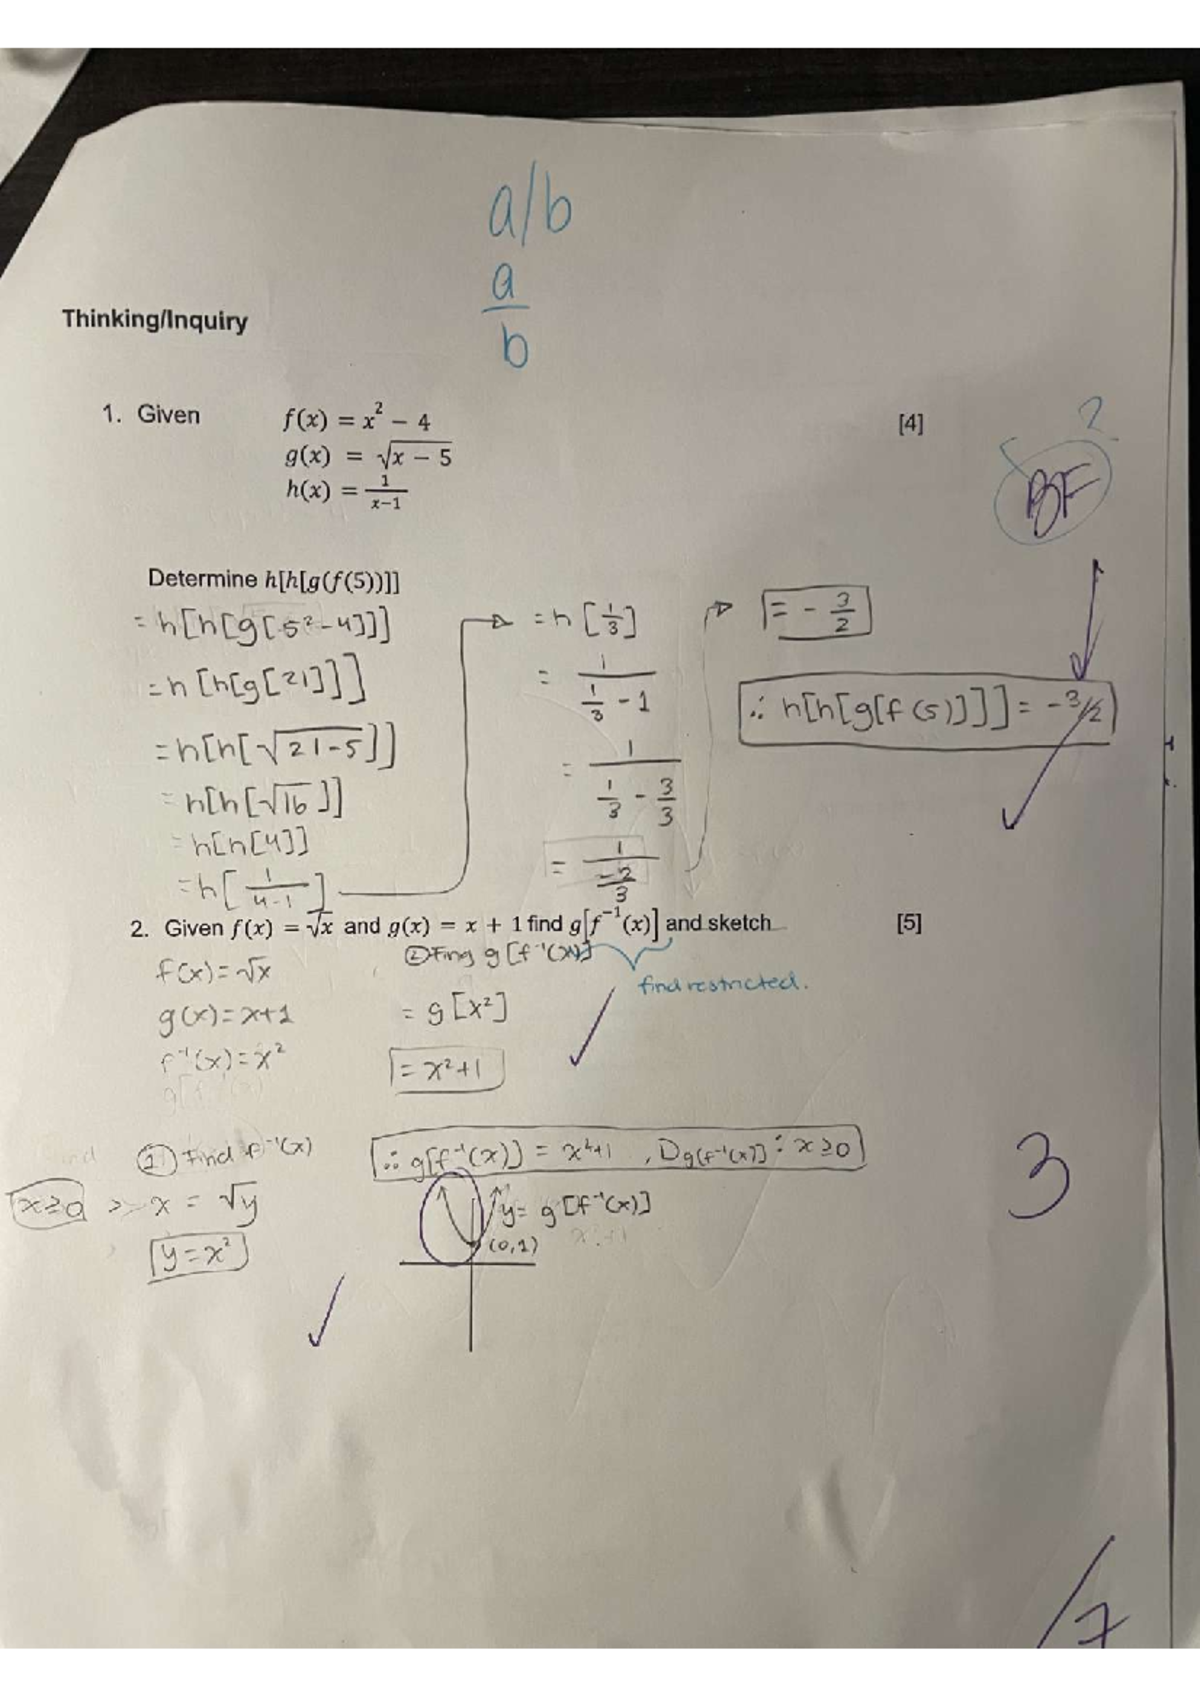 a/b
a
b
Thinking/Inquiry
1. Given f(x) = x² − 4 [4]
g(x) = √(x − 5)
h(x) = 1/(x−1)
2
BF
Determine h[h[g(f(5))]]
= h[h[g[5²-4]]]
= h[h[g[21]]]
= h[h[√(21-5)]]
= h[h[√16]]
= h[h[4]]
= h[1/(4-1)]
= h[1/3]
= 1/(1/3 - 1)
= 1/(1/3 - 3/3)
= 1/(-2/3)
= - 3/2
∴ h[h[g[f(5)]]] = -3/2
2. Given f(x) = √x and g(x) = x + 1 find g[f⁻¹(x)] and sketch [5]
f(x)=√x
g(x)=x+1
f⁻¹(x)=x²
② Fing g[f⁻¹(x)]
find restricted.
= g[x²]
= x²+1
① Find f⁻¹(x)
x≥0 x = √y
y=x²
∴ g[f⁻¹(x)] = x²+1 , Dg[f⁻¹(x)] : x≥0
y= g[f⁻¹(x)]
(0,1)
3
/7